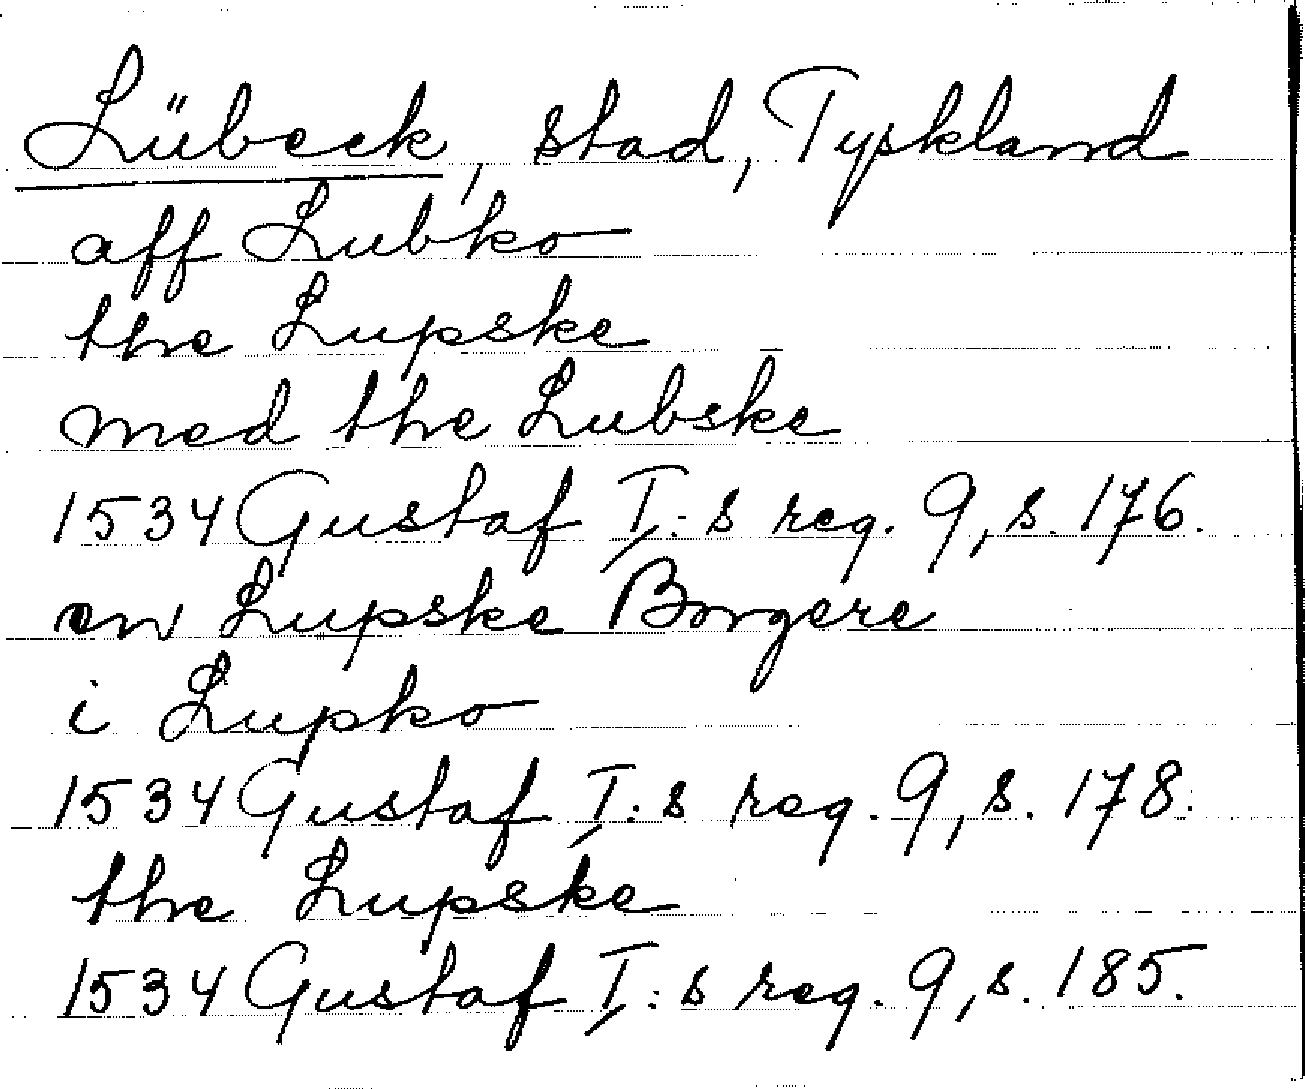 Lübeck, stad, Tyskland
aff Lubko
the Lupske
med the Lubske
1534 Gustaf I:s reg. 9, s. 176.
en Lupske Borgere
i Lupko
1534 Gustaf I:s reg. 9, s. 178.
the Lupske
1534 Gustaf I:s reg. 9, s. 185.